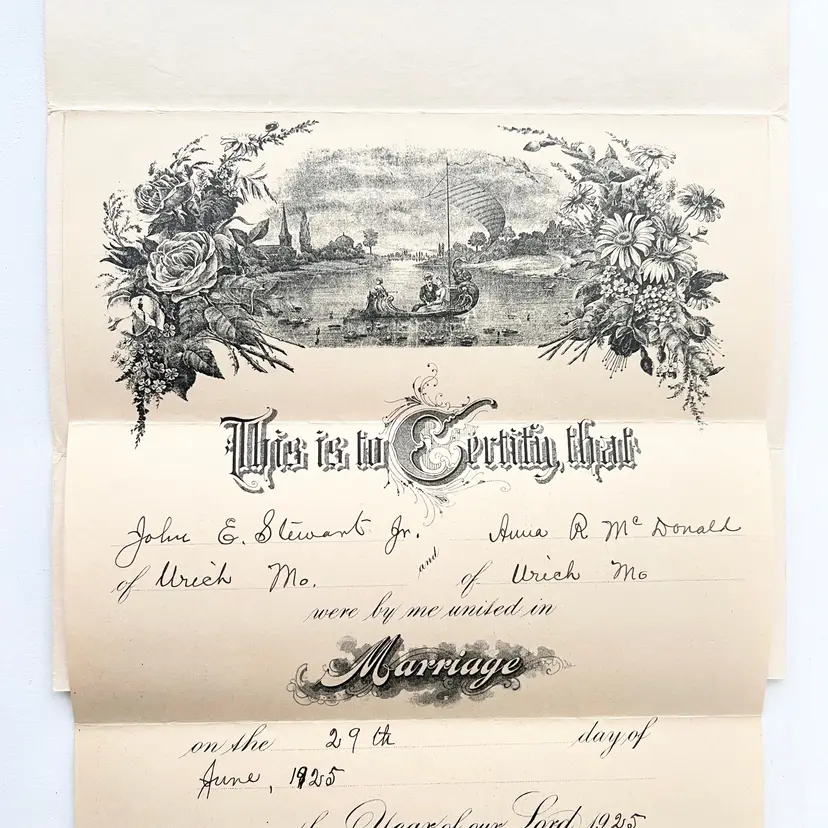 This is to Certify, that
John E. Stewart Jr. and Anna R McDonald
of Urich Mo. of Urich Mo
were by me united in
Marriage
on the 29th day of
June, 1925
Year of our Lord 1925